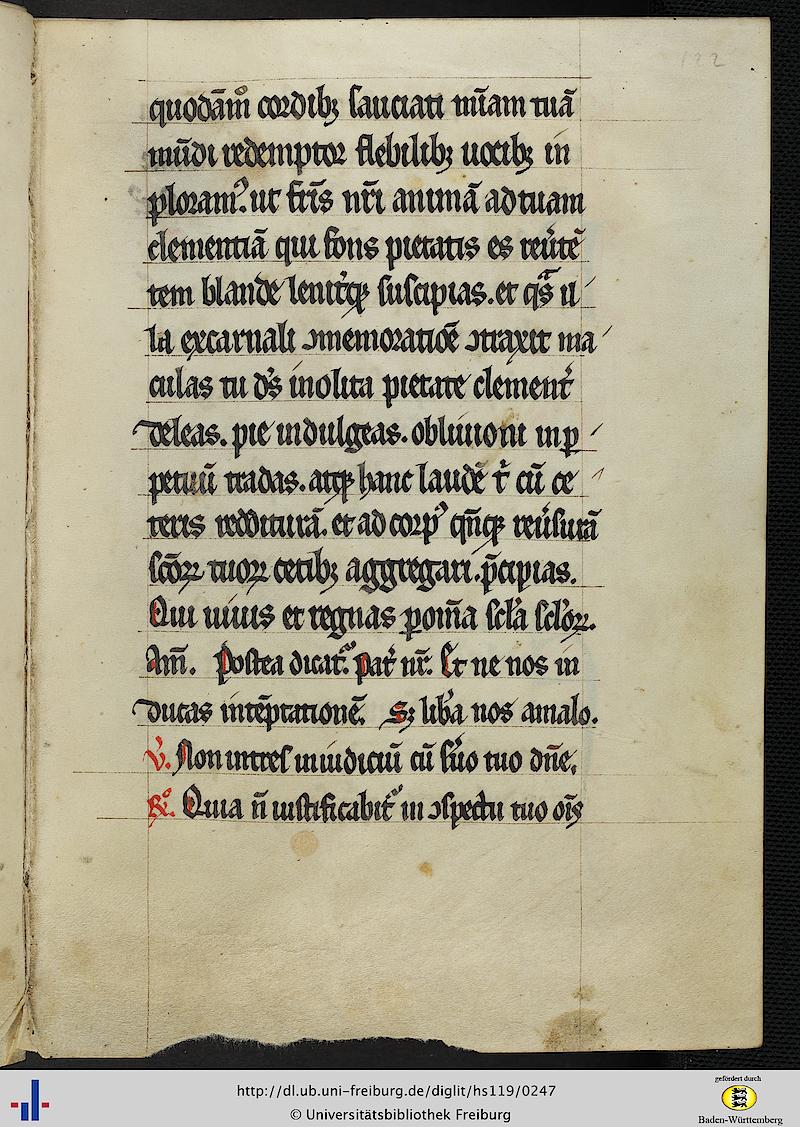 122
quodãmͦ cordibꝫ sauciati mĩam tuã
mũdi redemptor flebilibꝫ uocibꝫ in
ploramꝰ. ut fr̃is nr̃i animã ad tuam
clementiã qui fons pietatis es reũtẽ
tem blande lenit̾qꝫ suscipias. et qͣs il
la ex carnali ꝯmemoratiõe ꝯtraxit ma
culas tu dš inolita pietate clement̾
deleas. pie indulgeas. obliuioni in ꝑ
petuũ tradas. atqꝫ hanc laudẽ t̾ cũ ce
teris redditurã. et ad corpꝰ qñqꝫ reũsurã
sc̃oꝝ tuoꝝ cetibꝫ aggregari. p̃cipias.
Qui uiuis et regnas ꝑ om̃a scl̃a scl̃oꝝ.
Am̃. Postea dicat᷑. pat̾ nr̃. Et ne nos in
ducas in tẽptationẽ. Sꝫ lib̾a nos a malo.
V̾. Non intres in iudiciũ cũ s̾uo tuo dñe.
R̾ͦ. Quia ñ iustificabit᷑ in ꝯspectu tuo oĩs
http://dl.ub.uni-freiburg.de/diglit/hs119/0247
© Universitätsbibliothek Freiburg
gefördert durch
Baden-Württemberg